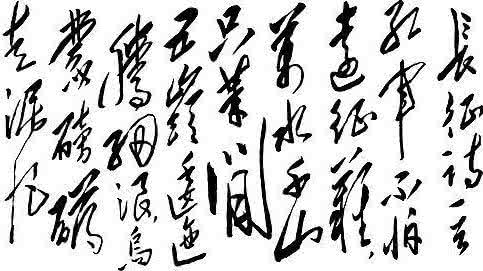 長征詩一首
紅軍不怕
遠征難，
萬水千山
只等閒
五嶺逶迤
騰細浪，烏
蒙磅礴
走泥丸